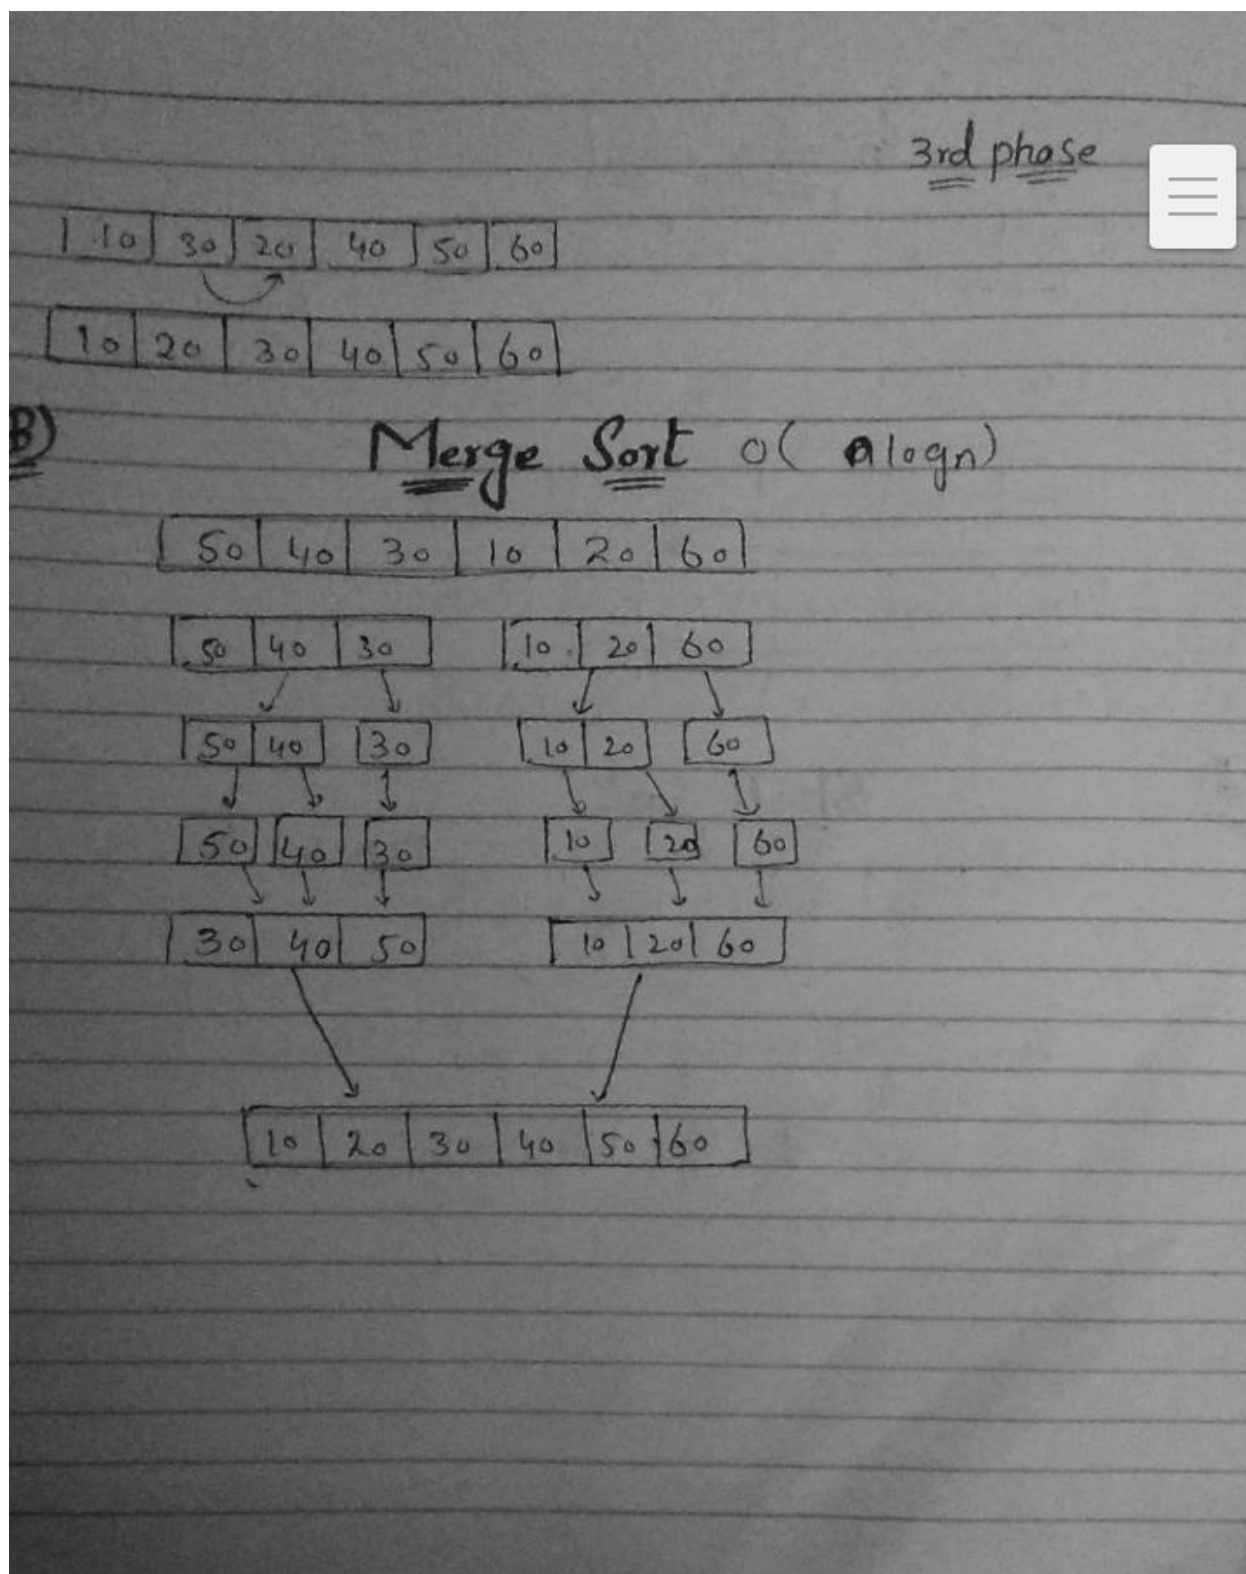 3rd phase
10 30 20 40 50 60
10 20 30 40 50 60
B) Merge Sort O( nlogn)
50 40 30 10 20 60
50 40 30 10 20 60
50 40 30 10 20 60
50 40 30 10 20 60
30 40 50 10 20 60
10 20 30 40 50 60